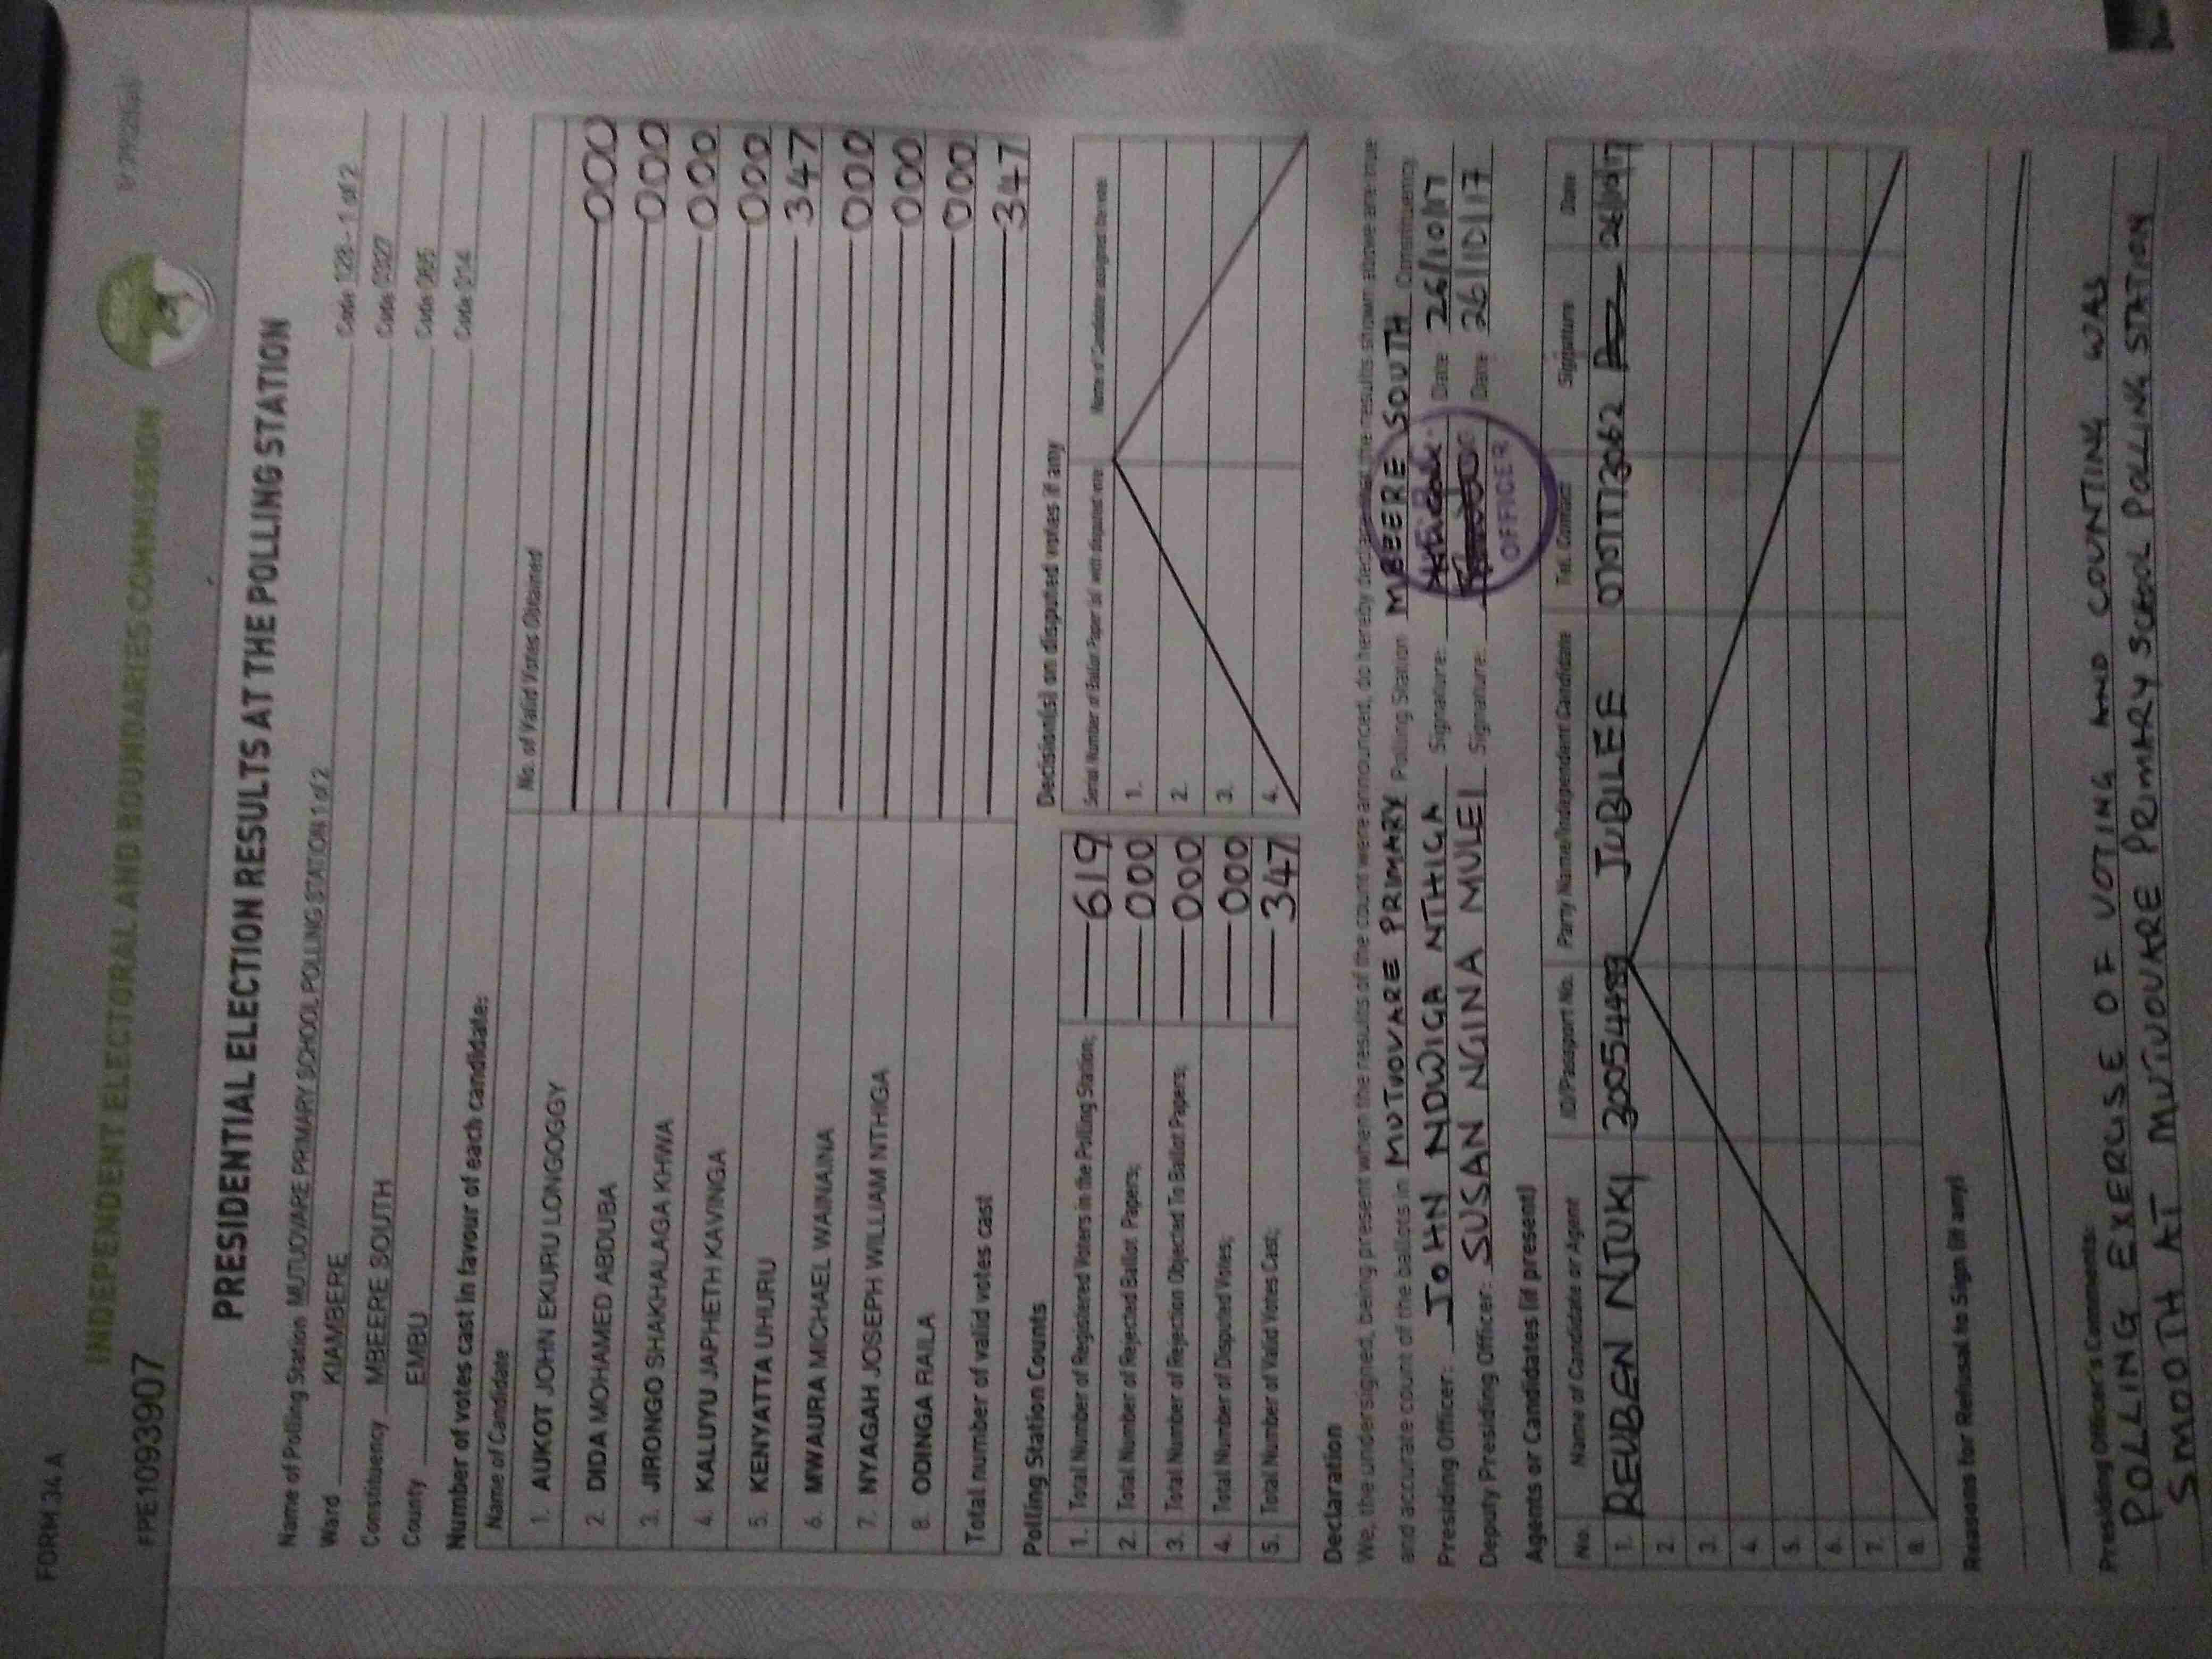 FORM 34 A
INDEPENDENT ELECTORAL AND BOUNDARIES COMMISSION
FPE1093907
PRESIDENTIAL ELECTION RESULTS AT THE POLLING STATION
Name of Polling Station MUTUOVARE PRIMARY SCHOOL POLLING STATION 1 of 2 Code 128 - 1 of 2
Ward KIAMBERE Code 0327
Constituency MBEERE SOUTH Code 065
County EMBU Code 014
Number of votes cast in favour of each candidate:
Name of Candidate No. of Valid Votes Obtained
1. AUKOT JOHN EKURU LONGOGGY 000
2. DIDA MOHAMED ABDUBA 000
3. JIRONGO SHAKHALAGA KHWA 000
4. KALUYU JAPHETH KAVINGA 000
5. KENYATTA UHURU 347
6. MWAURA MICHAEL WAINAINA 000
7. NYAGAH JOSEPH WILLIAM NTHIGA 000
8. ODINGA RAILA 000
Total number of valid votes cast 347
Polling Station Counts
1. Total Number of Registered Voters in the Polling Station; 619
2. Total Number of Rejected Ballot Papers; 000
3. Total Number of Rejection Objected To Ballot Papers; 000
4. Total Number of Disputed Votes; 000
5. Total Number of Valid Votes Cast; 347
Decision(s) on disputed votes if any
Serial Number of Ballot Paper (s) with disputed vote Name of Candidate assigned the vote
1.
2.
3.
4.
Declaration
We, the undersigned, being present when the results of the count were announced, do hereby declare that the results shown above are true
and accurate count of the ballots in MUTUOVARE PRIMARY Polling Station MBEERE SOUTH Constituency
Presiding Officer: JOHN NDWIGA NTHIGA Signature: Date 26/10/17
Deputy Presiding Officer: SUSAN NGINA MULEI Signature: Date 26/10/17
OFFICER
Agents or Candidates (if present)
No. Name of Candidate or Agent ID/Passport No. Party Name/Independent Candidate Tel. Contact Signature Date
1. REUBEN NJUKI JUBILEE 26/10/17
2.
3.
4.
5.
6.
7.
8.
Reasons for Refusal to Sign (if any)
Presiding Officer's Comments:
POLLING EXERCISE OF VOTING AND COUNTING WAS
SMOOTH AT MUTUOVARE PRIMARY SCHOOL POLLING STATION